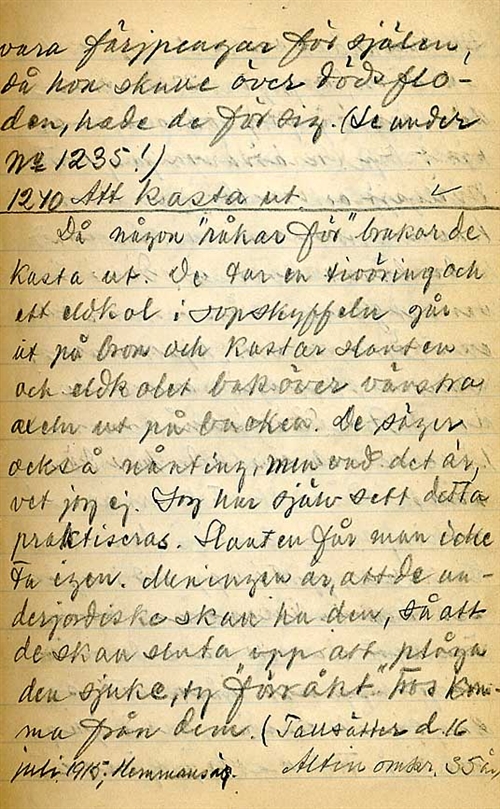 vara färjpengar för själen,
då hon skulle över dödsflo-
den, hade de för sig. (Se under
No 1235!)
1240 Att kasta ut.
Då någon "råkar för" brukar de
kasta ut. De tar en tioöring och
ett eldkol i sopskyffeln går
ut på bron och kastar slanten
och eldkolet baköver vänstra
axeln ut på backen. De säger
också nånting, men vad det är,
vet jag ej. Jag har själv sett detta
praktiseras. Slanten får man icke
ta igen. Meningen är, att de un-
derjordiske skall ha den, så att
de skall sluta upp att plåga
den sjuke, ty "förråkt" tros kom-
ma från dem. (Tallsätter d. 16
juli 1915, Hemmansäg. Altin omkr. 35 år